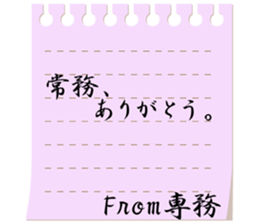 常務、
ありがとう。
From専務